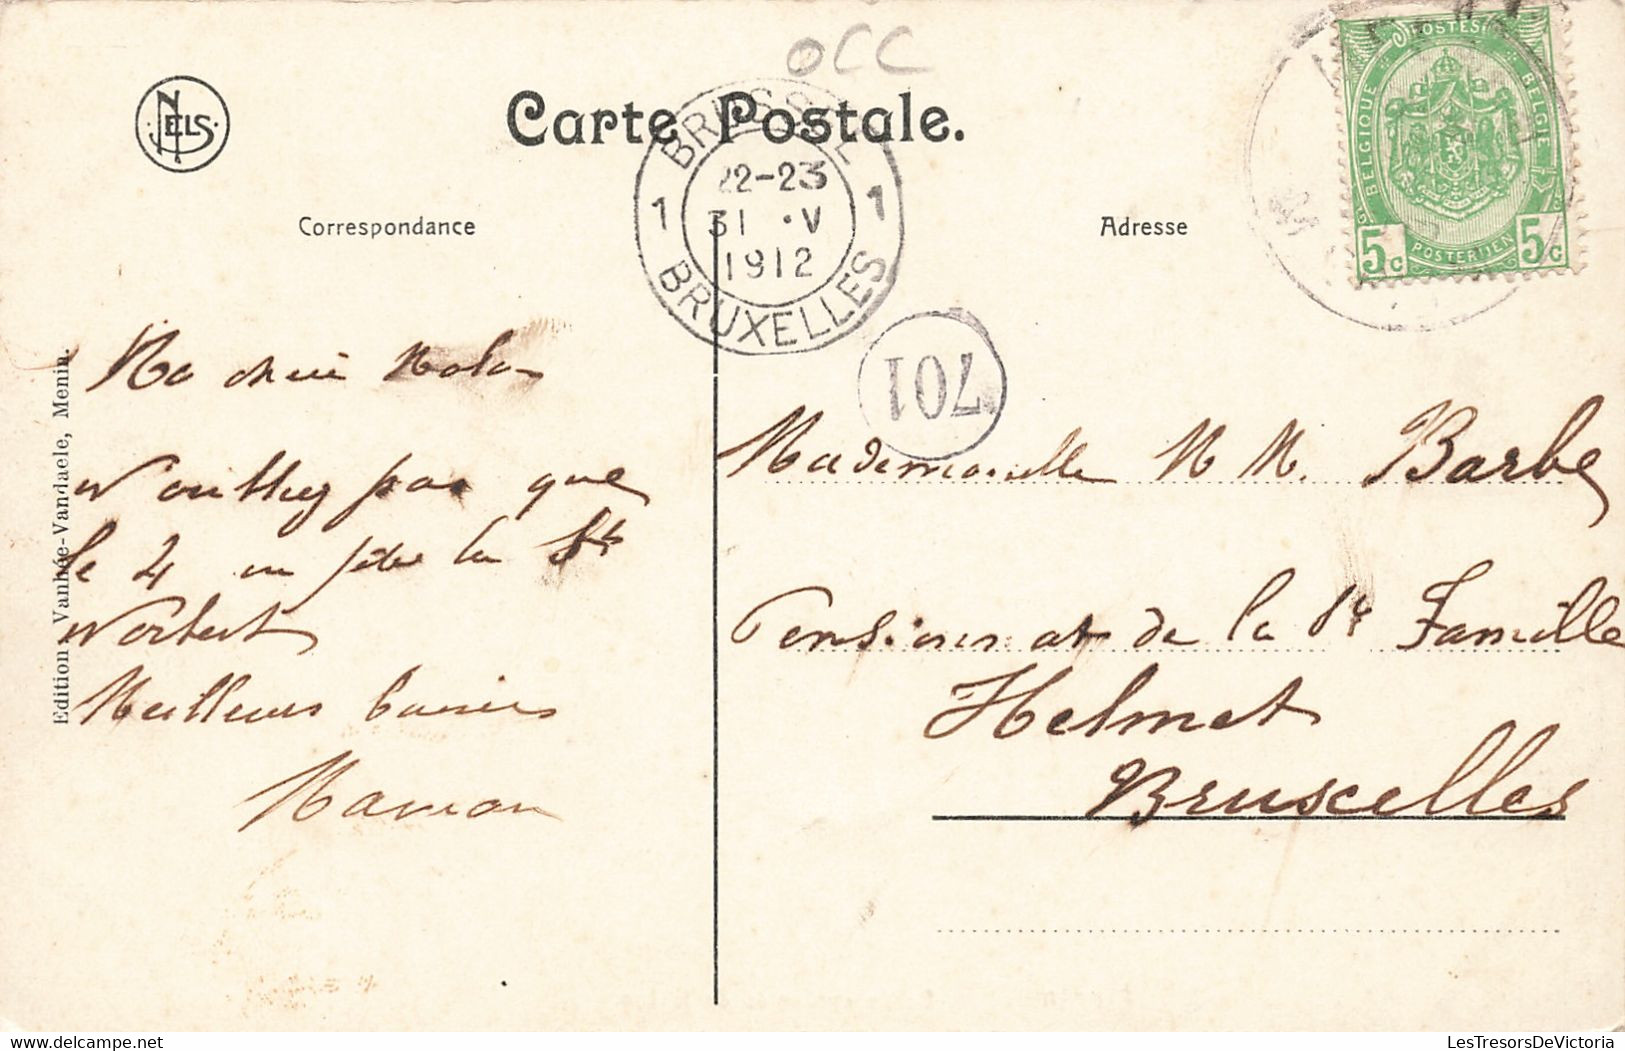 OCC
NELS
Carte Postale.
BRUSSEL
22-23
1 31 · V 1
1912
BRUXELLES
POSTES
BELGIQUE BELGIE
5c POSTERIJEN 5c
Correspondance
Adresse
701
Ma chère
N'oubliez pas que
le 4 on fête la St
Norbert
Meilleurs baisers
Maman
Mademoiselle M M. Barbe
Pensionnat de la Ste Famille
Helmet
Bruxelles
Edition Vanhée-Vandaele, Menin.
LesTresorsDeVictoria